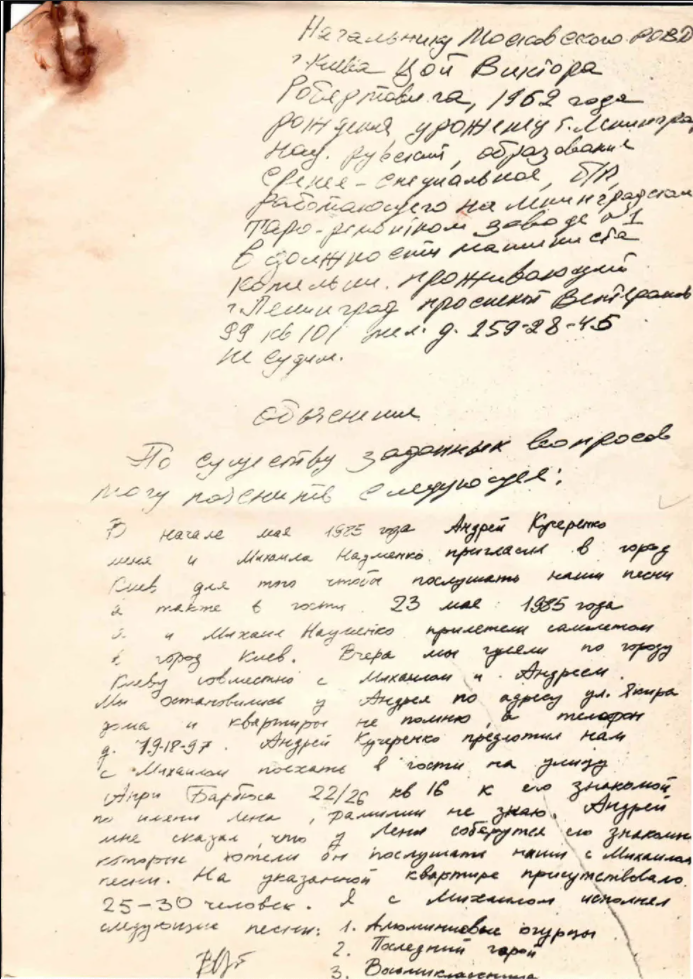 Начальнику Московского РОВД
г. Киева Цой Виктора
Робертовича, 1962 года
рождения, уроженец г. Ленинград
нац. русский, образование
средне-специальное, б/п,
работающего на Ленинградском
таро-ремонтном заводе №1
в должности машиниста
котельни. проживающий
г. Ленинград проспект Ветеранов
99 кв 101 тел. д. 259-28-45
не судим.
объяснение
По существу заданных вопросов
могу пояснить следующее:
В начале мая 1985 года Андрей Кучеренко
меня и Михаила Науменко пригласил в город
Киев для того чтобы послушать наши песни
а также в гости. 23 мая 1985 года
я и Михаил Науменко прилетели самолетом
в город Киев. Вчера мы гуляли по городу
Киеву совместно с Михаилом и Андреем.
Мы остановились у Андрея по адресу ул. Якира
дома и квартиры не помню, а телефон
д. 79-18-97. Андрей Кучеренко предложил нам
с Михаилом поехать в гости на улицу
Анри Барбюса 22/26 кв 16 к его знакомой
по имени Лена, фамилии не знаю. Андрей
мне сказал, что у Лены соберутся его знакомые
которые хотели бы послушать наши с Михаилом
песни. На указанной квартире присутствовало
25-30 человек. Я с Михаилом исполнял
следующие песни: 1. Алюминиевые огурцы
2. Последний герой
3. Восьмиклассница